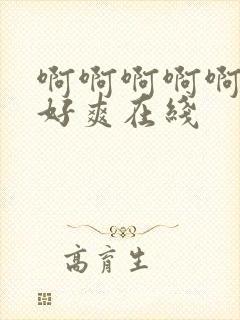 啊啊啊啊啊
好爽在綫
高育生